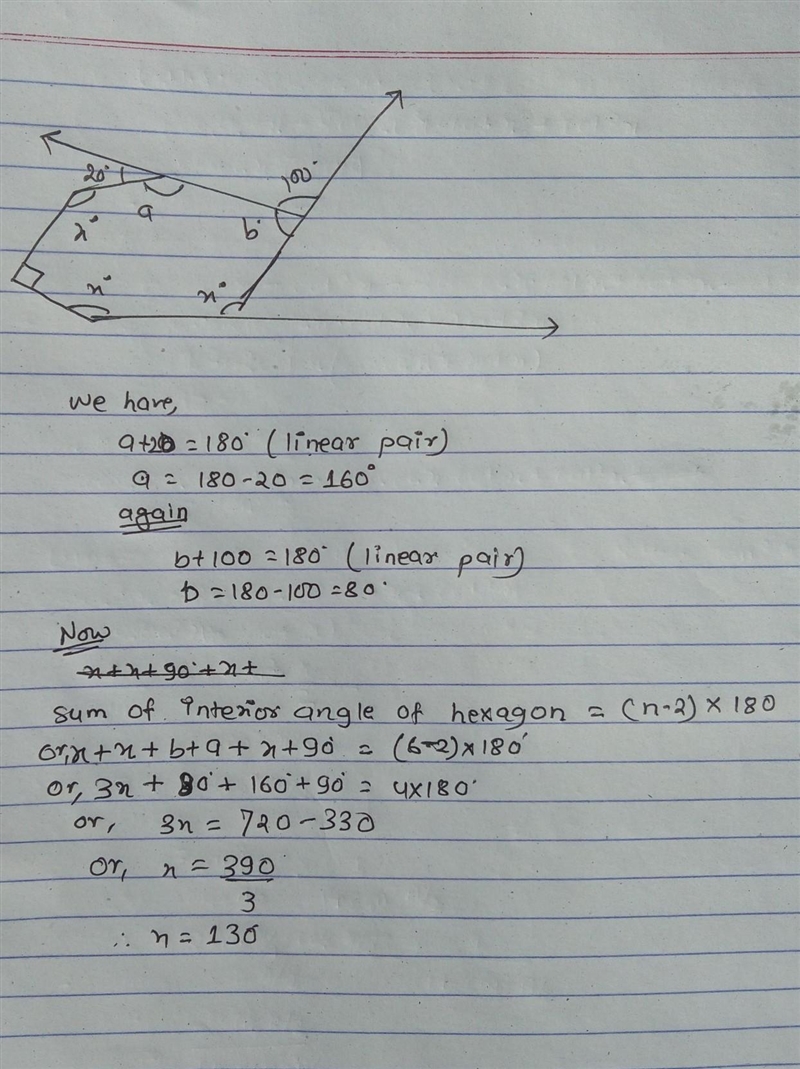 20°
100°
a
b°
x°
x°
x°
We have,
a+20 = 180° (linear pair)
a = 180-20 = 160°
again
b+100 = 180° (linear pair)
b = 180-100 = 80°
Now
x+x+90°+x+
sum of interior angle of hexagon = (n-2) × 180
or, x+x+b+a+x+90° = (6-2)×180°
or, 3x + 80° + 160° + 90° = 4×180°
or, 3x = 720-330
or, x = 390
3
∴ x = 130